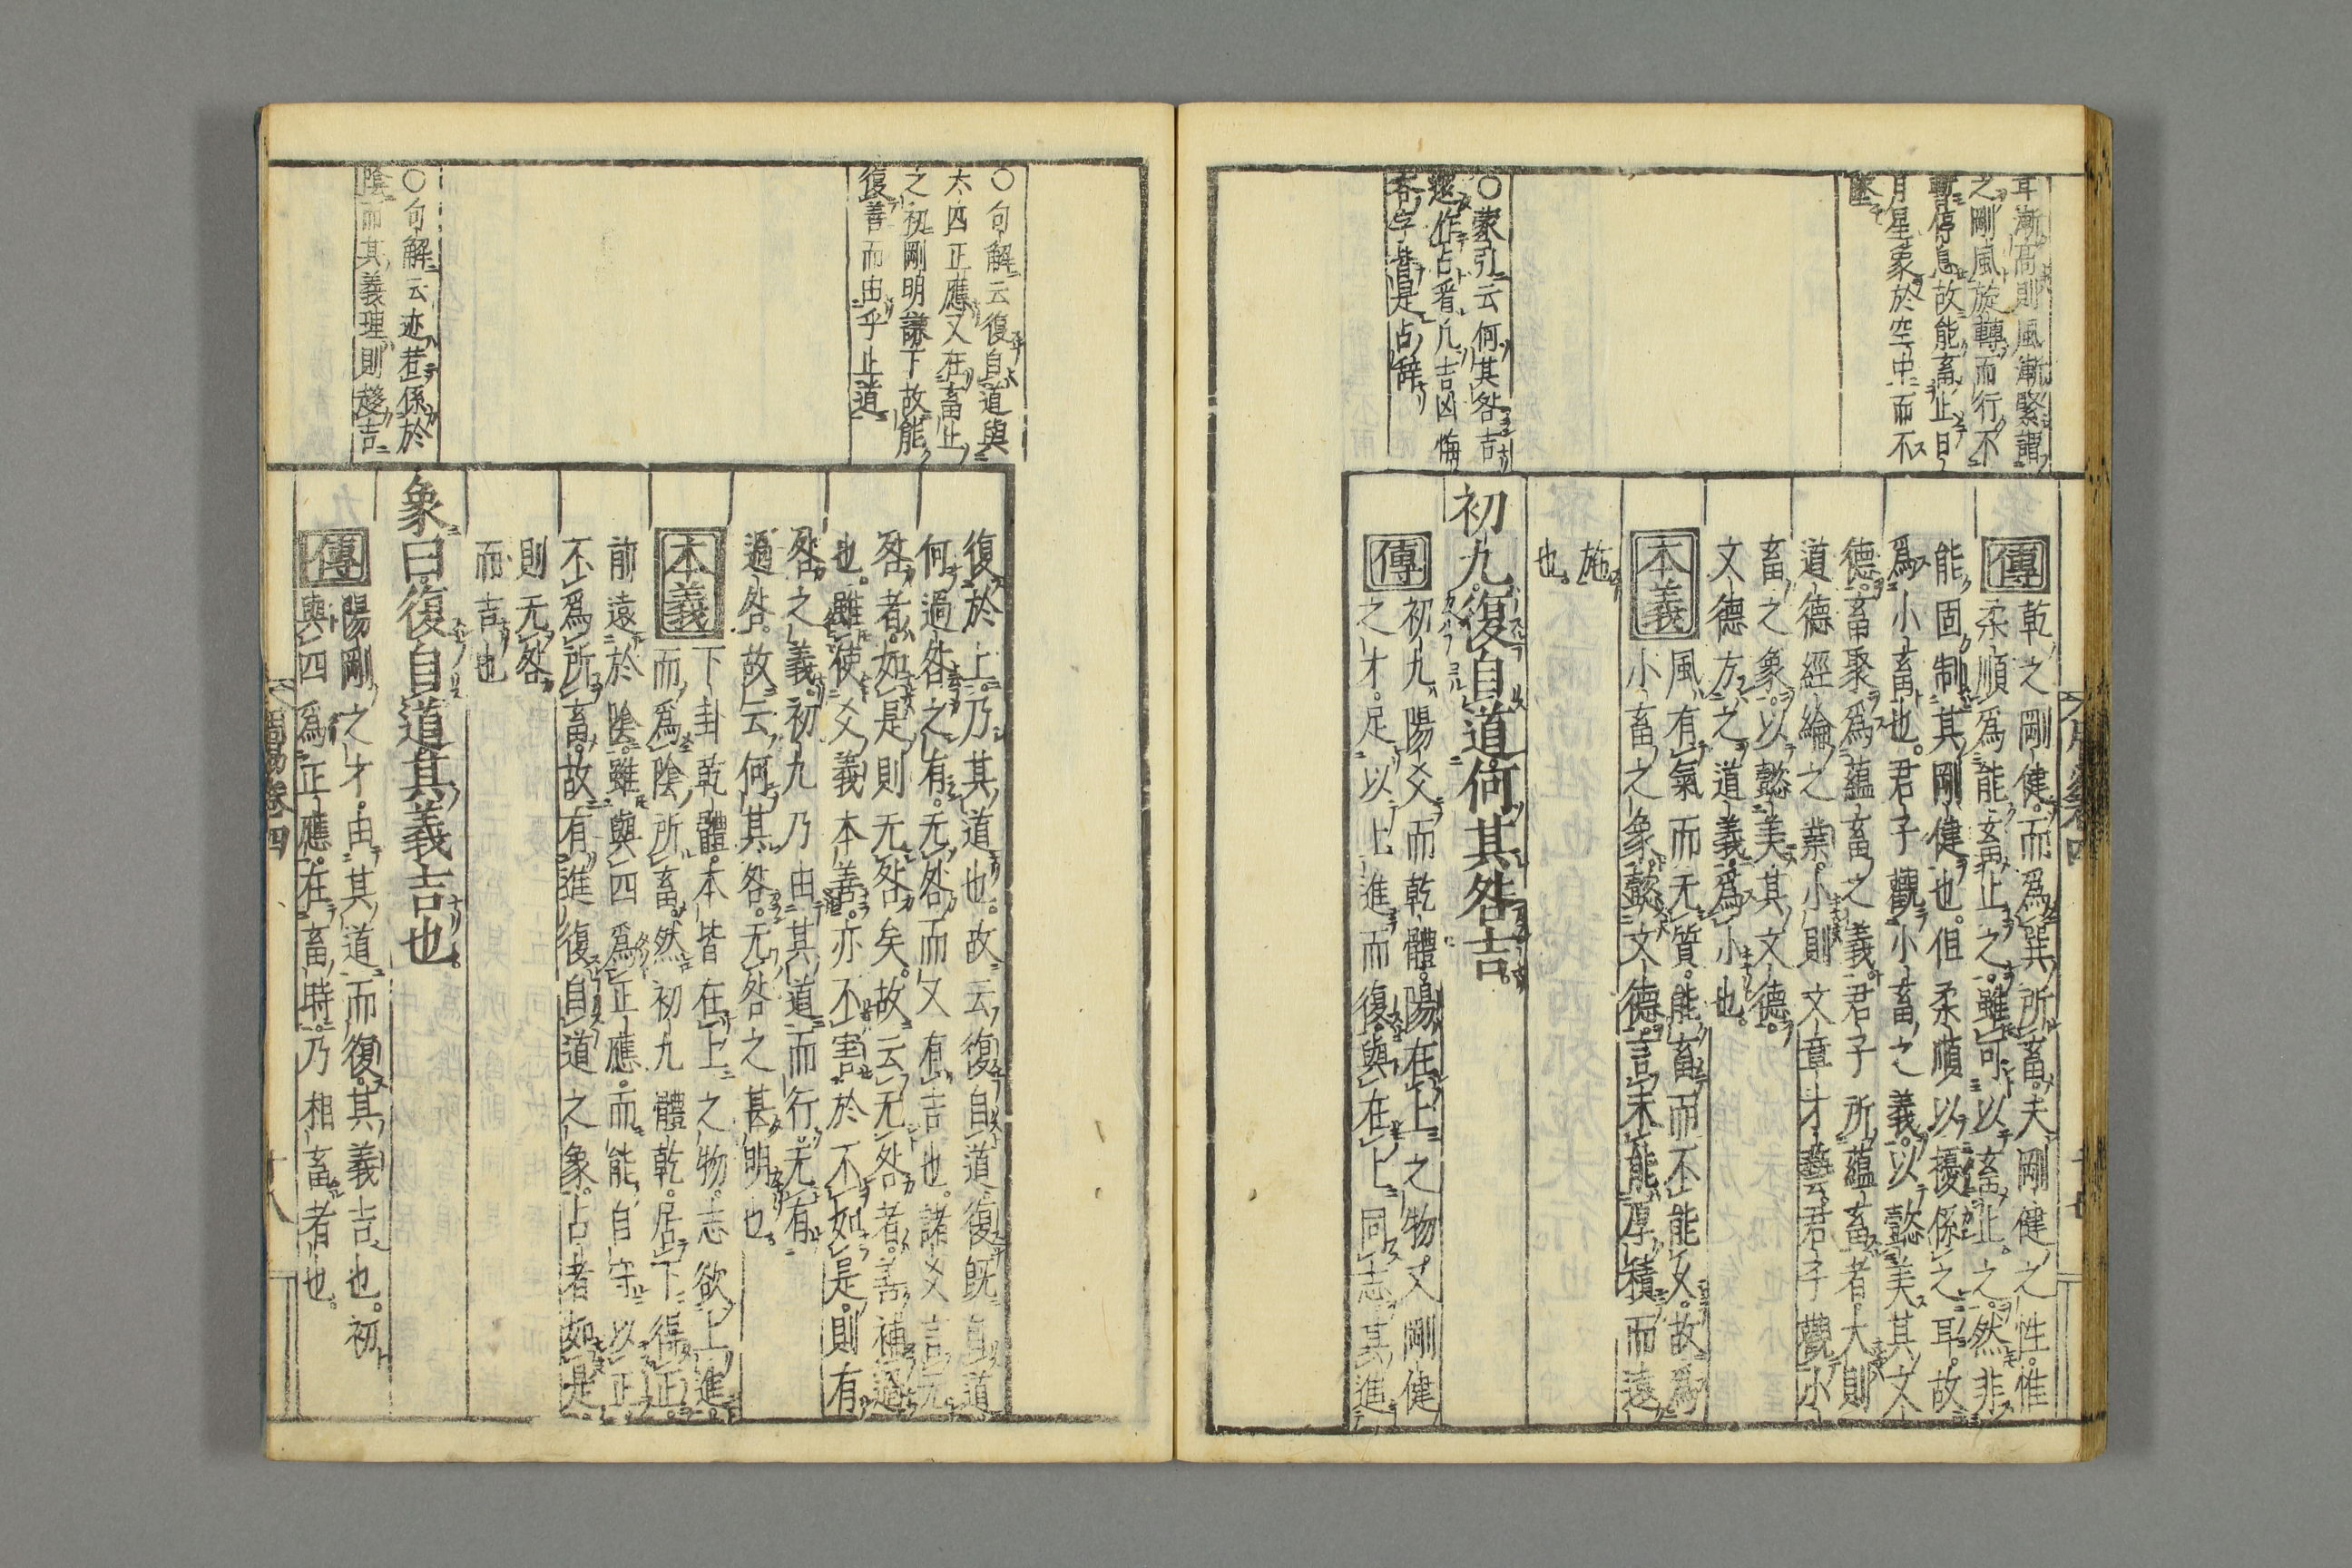 年漸高則風漸緊謂
之剛風旋轉而行不
暫停息故能畜止日
月星象於空中而不
墜
○蒙引云何其咎吉
還作占看凡吉凶悔
吝字皆是占辞
傳
乾之剛健而爲巽所畜夫剛健之性惟
柔順爲能畜止之雖可以畜止之然非
能固制其剛健也但柔順以擾係之耳故
爲小畜也君子觀小畜之義以懿美其文
德畜聚爲蘊畜之義君子所蘊畜者大則
道德經綸之業小則文章才藝君子觀小
畜之象以懿美其文德
文德方之道義爲小也
本義
風有氣而无質能畜而不能久故爲
小畜之象懿文德言未能厚積而遠
施
也
初九復自道何其咎吉
傳
初九陽爻而乾體陽在上之物又剛健
之才足以上進而復與在上同志其進
○句解云復自道與
六四正應又在畜止
之初剛明謙下故能
復善而由乎止道
○句解云迹若係於
陰而其義理則趍吉
復於上乃其道也故云復自道復既自道
何過咎之有无咎而又有吉也諸爻言无
咎者如是則无咎矣故云无咎者善補過
也雖使爻義本善亦不害於不如是則有
咎之義初九乃由其道而行无有
過咎故云何其咎无咎之甚明也
本義
下卦乾體本皆在上之物志欲上進
而爲陰所畜然初九體乾居下得正
前遠於陰雖與四爲正應而能自守以正
不爲所畜故有進復自道之象占者如是
則无咎
而吉也
象曰復自道其義吉也
傳
陽剛之才由其道而復其義吉也初
與四爲正應在畜時乃相畜者也
周易卷四
十八